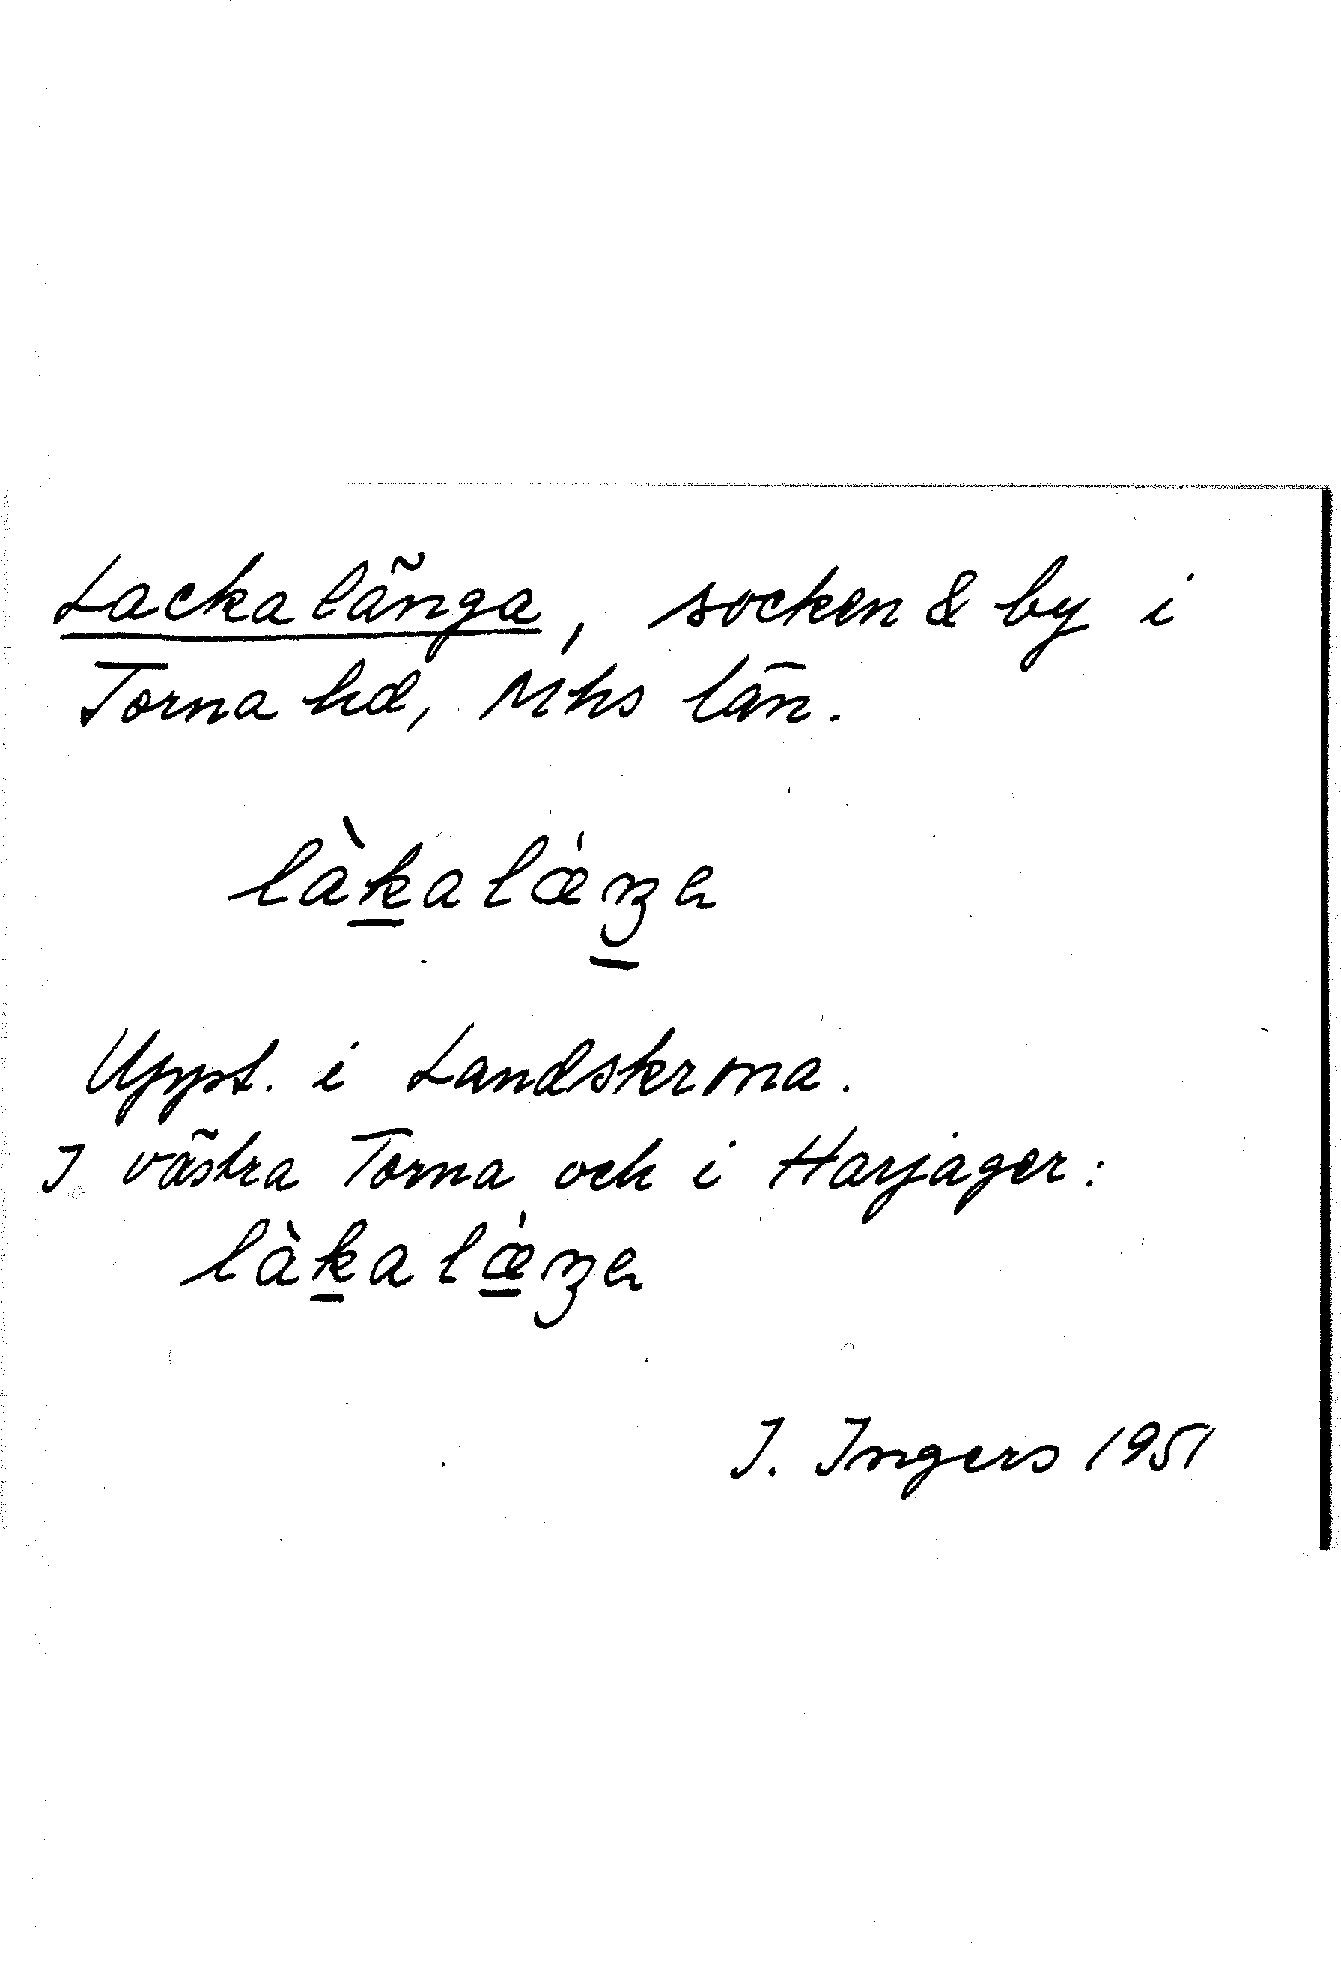 Lackalänga, socken & by i
Torna hd, Mhs län.
làkalǽŋa
Uppt. i Landskrona.
I västra Torna och i Harjager:
làkalǽŋa
I. Ingers 1951